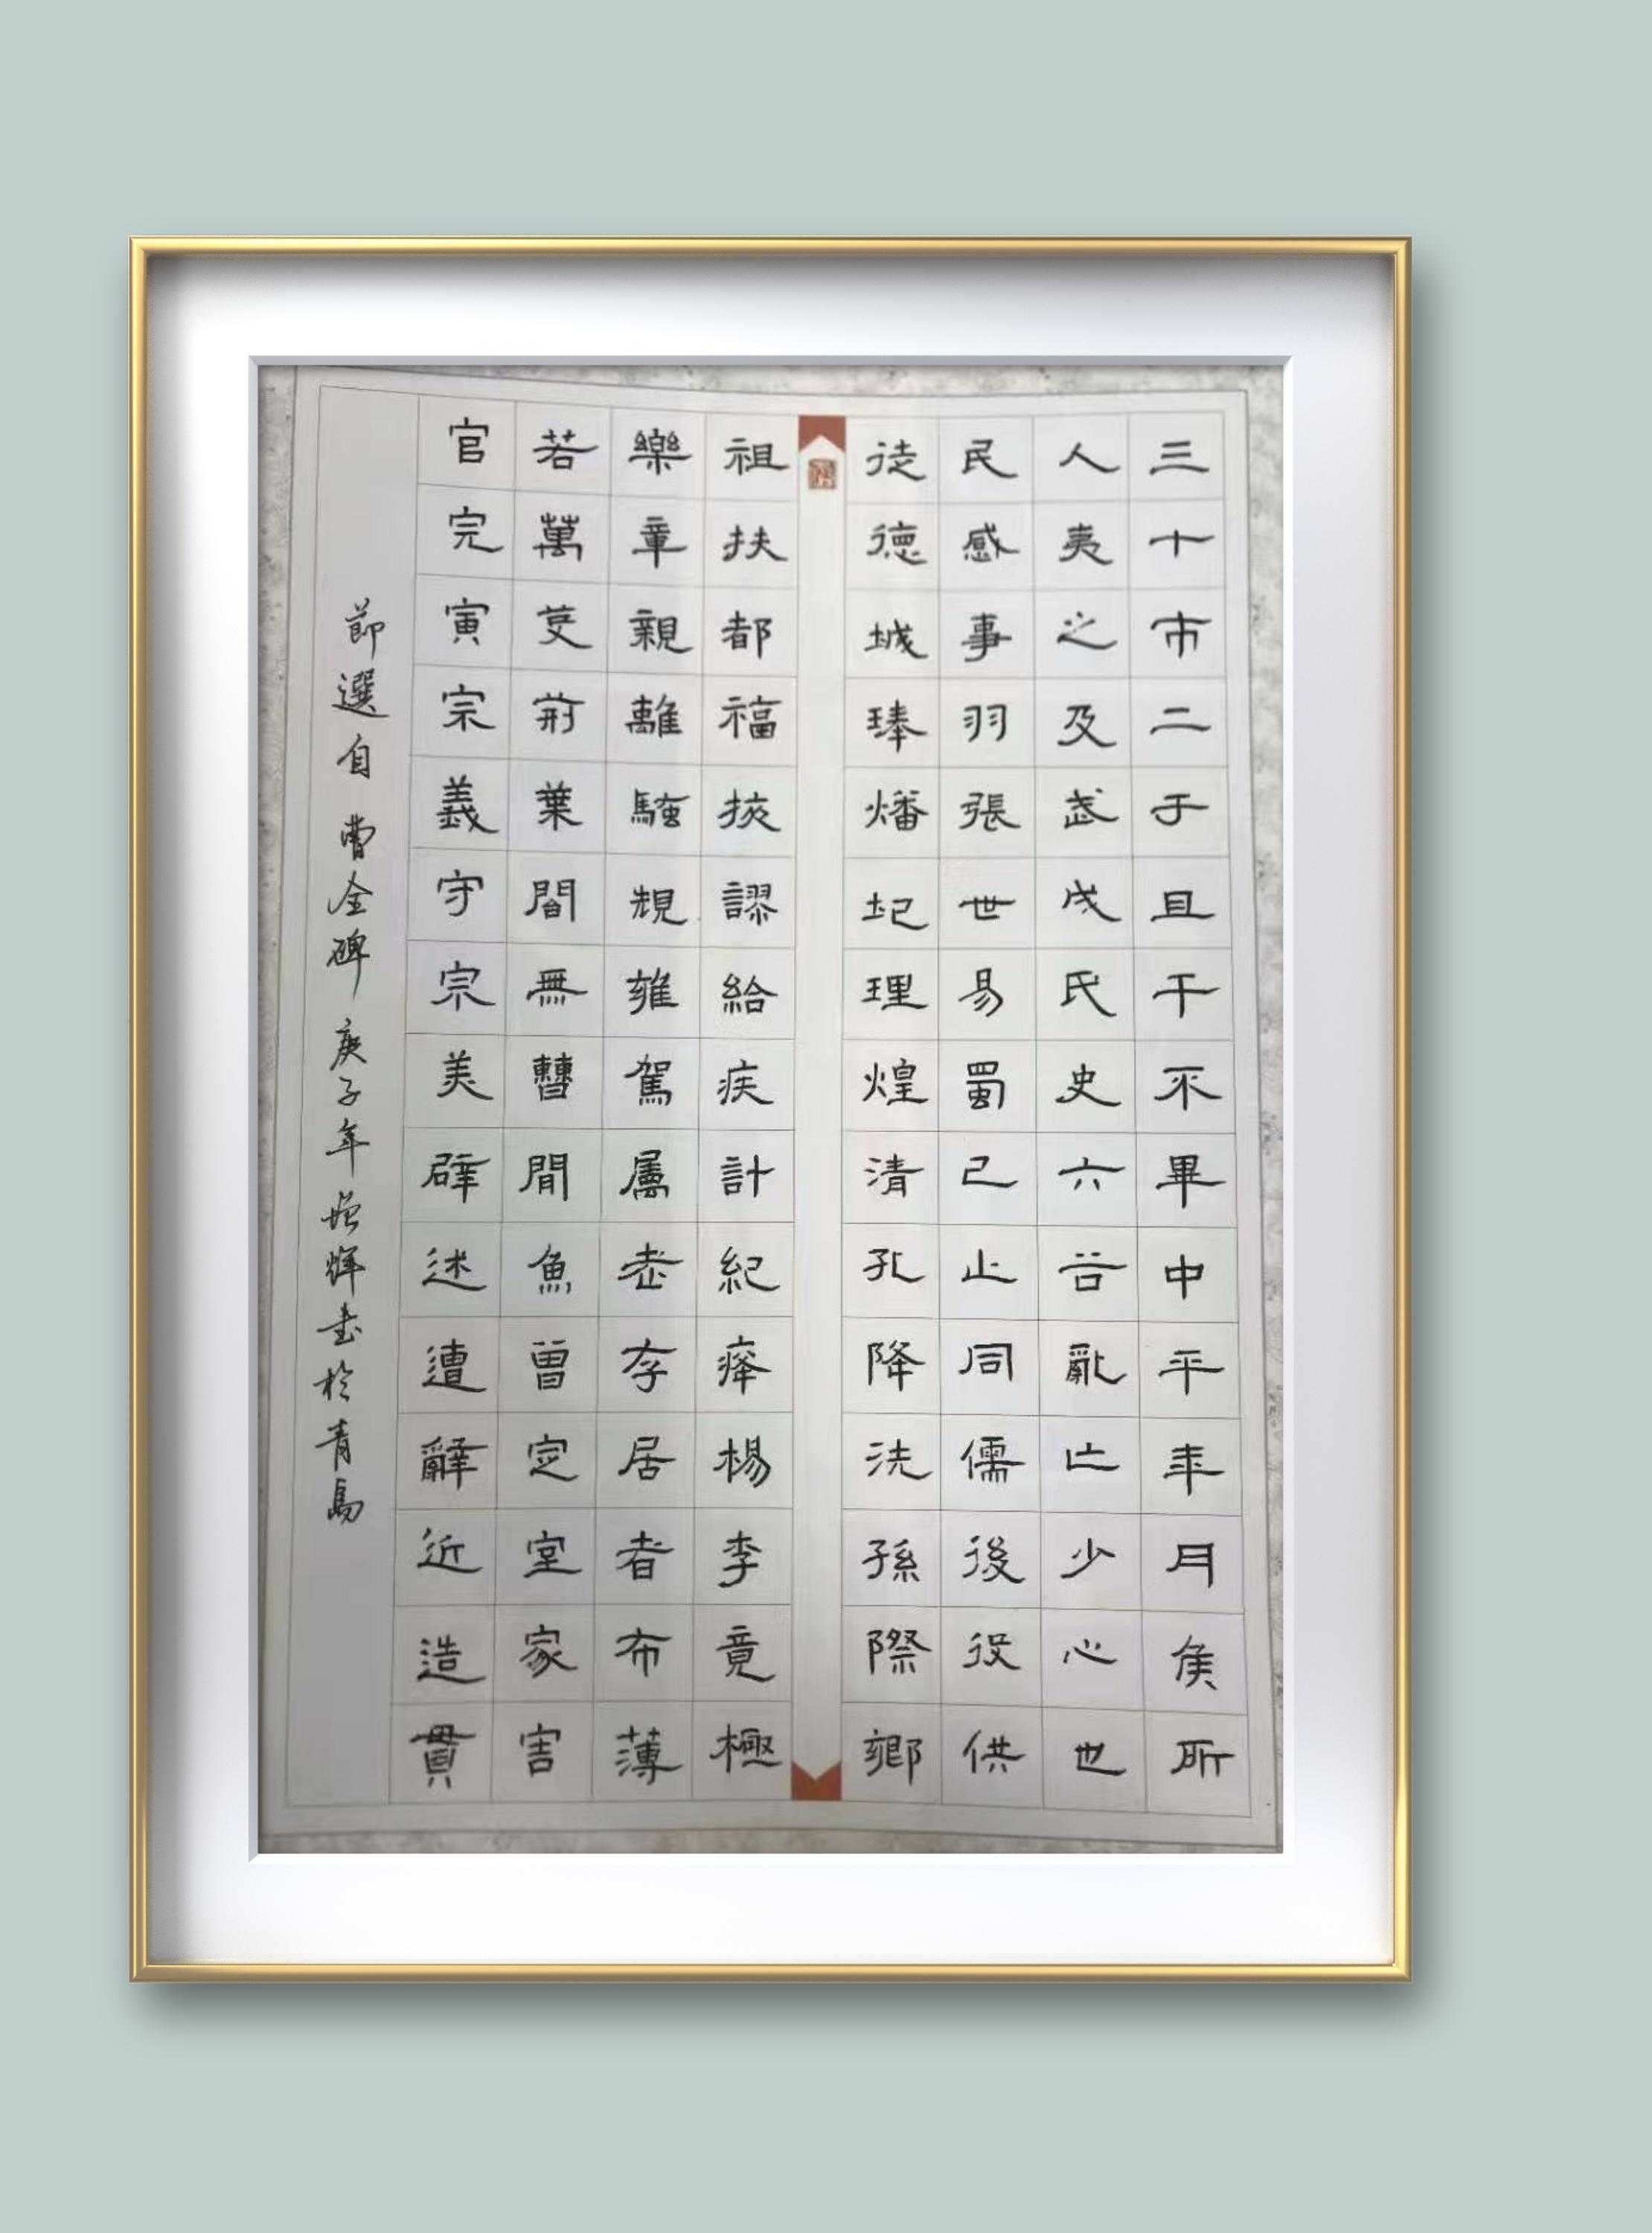 三十市二于且干不畢中平年月侯所
人夷之及武戌氏史六谷亂亡少心也
民感事羽張世易蜀己止同儒後役供
徒德城瑧燔圮理煌清孔降洗孫際鄉
祖扶都福掖謬給疾計紀瘁楊李竟極
樂章親離騷規雍駕屬老存居者布薄
若萬芟荊葉閻無轊閒魚曾定室家害
官完寅宗義守宗美辟述遭辭近造貫
節選自曹全碑庚子年 輝書於青島